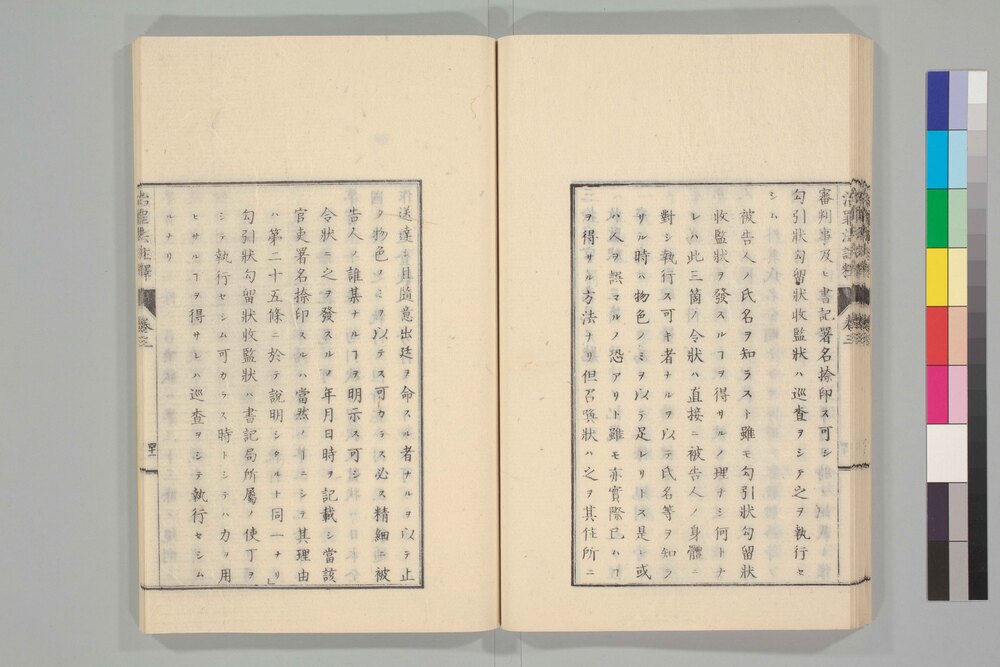 審判事及ヒ書記署名捺印ス可シ
勾引狀勾留狀收監狀ハ巡査ヲシテ之ヲ執行セ
シム
被告人ノ氏名ヲ知ラスト雖モ勾引狀勾留狀
收監狀ヲ發スルヿヲ得サルノ理ナシ何トナ
レハ此三箇ノ令狀ハ直接ニ被告人ノ身體ニ
對シ執行ス可キ者ナルヲ以テ氏名等ヲ知ラ
サル時ハ物色ノミヲ以テ足レリトス是レ或
ハ人ヲ誤マルノ恐アリト雖モ亦實際已ムヿ
ヲ得サル方法ナリ但召喚狀ハ之ヲ其住所ニ
送達シ且隨意出廷ヲ命スル者ナルヲ以テ止
タ物色ノミヲ以テス可カラス必ス精細ニ被
告人ノ誰某ナルヿヲ明示ス可シ
令狀ニ之ヲ發スルノ年月日時ヲ記載シ當該
官吏署名捺印スルハ當然ノヿニシテ其理由
ハ第二十五條ニ於テ說明シタルト同一ナリ
勾引狀勾留狀收監狀ハ書記局所屬ノ使丁ヲ
シテ執行セシム可カラス時トシテハ力ヲ用
ヒサルヿヲ得サレハ巡查ヲシテ執行セシム
ルナリ
治罪法註釋
卷三